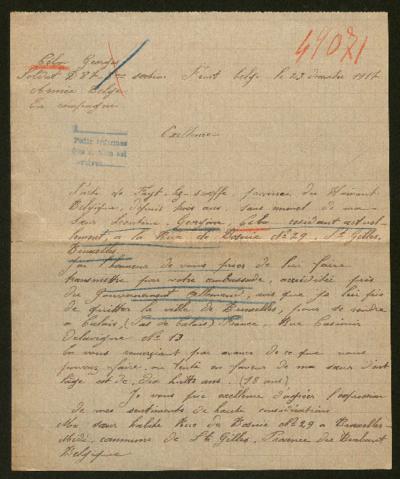 49071
Célor Georges
Soldat D 87 section Front belge le 23 1917
Armée Belge
En campagne
Excellence
Sorti de Fayt-lez-Seneffe, province du Hainaut
Belgique, depuis trois ans, sans nouvel de ma
sœur résidant actuel-
lement, à la Rue de Bosnie N° 29. St Gilles,
Bruxelles
J'ai l'honneur de vous prier de lui faire
transmettre par votre ambassade, accréditée près
du Gouvernement allemand, avis que je lui fais
de quitter la ville de Bruxelles, pour se rendre
à Calais, (Pas de Calais) France, Rue Casimir
Delavigne N° 13
En vous remerciant par avance de ce que vous
pourrez faire, ou tenté en faveur de ma sœur dont
l'âge est de dix huit ans. (18 ans)
Je vous prie excellence d'agréer l'expression
de mes sentiments de haute considération
Ma sœur habite Rue de Bosnie N° 29 à Bruxelles-
Midi, commune de St Gilles, Province du Brabant
Belgique